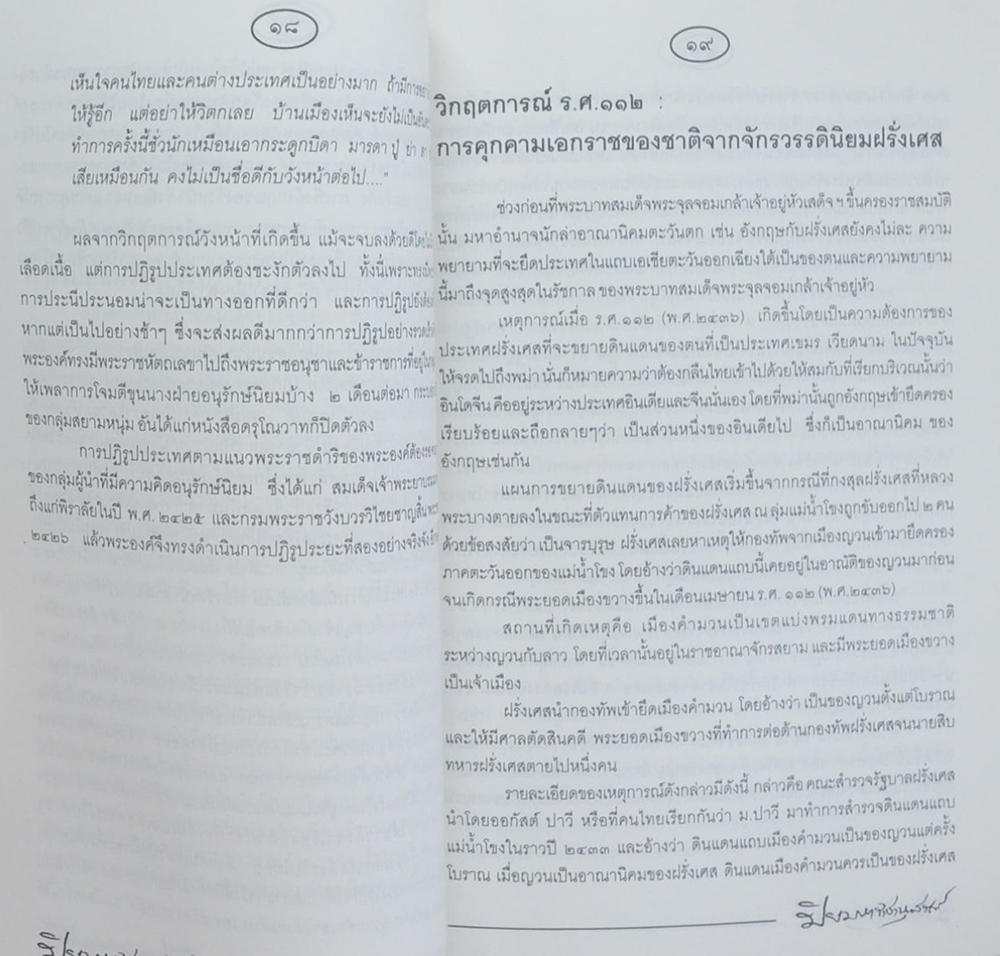 ๑๘
เห็นใจคนไทยและคนต่างประเทศเป็นอย่างมาก ถ้ามีการ
ให้รู้อีก แต่อย่าให้วิตกเลย บ้านเมืองเห็นจะยังไม่เป็น
ทำการครั้งนี้ชั่วนักเหมือนเอากระดูกบิดา มารดา ปู่ ย่า
เสียเหมือนกัน คงไม่เป็นชื่อดีกับวังหน้าต่อไป...."
ผลจากวิกฤตการณ์วังหน้าที่เกิดขึ้น แม้จะจบลงด้วยดีโดยไม่
เลือดเนื้อ แต่การปฏิรูปประเทศต้องชะงักตัวลงไป ทั้งนี้เพราะทรง
การประนีประนอมน่าจะเป็นทางออกที่ดีกว่า และการปฏิรูปยัง
หากแต่เป็นไปอย่างช้าๆ ซึ่งจะส่งผลดีมากกว่าการปฏิรูปอย่าง
พระองค์ทรงมีพระราชหัตถเลขาไปถึงพระราชอนุชาและข้าราชการที่อยู่ใน
ให้เพลาการโจมตีขุนนางฝ่ายอนุรักษ์นิยมบ้าง ๒ เดือนต่อมา
ของกลุ่มสยามหนุ่ม อันได้แก่หนังสือดรุโณวาทก็ปิดตัวลง
การปฏิรูปประเทศตามแนวพระราชดำริของพระองค์ต้อง
ของกลุ่มผู้นำที่มีความคิดอนุรักษ์นิยม ซึ่งได้แก่ สมเด็จเจ้าพระยา
ถึงแก่พิราลัยในปี พ.ศ. ๒๔๒๕ และกรมพระราชวังบวรวิไชยชาญสิ้น
๒๔๒๖ แล้วพระองค์จึงทรงดำเนินการปฏิรูประยะที่สองอย่างจริงจัง
๑๙
วิกฤตการณ์ ร.ศ.๑๑๒ :
การคุกคามเอกราชของชาติจากจักรวรรดินิยมฝรั่งเศส
ช่วงก่อนที่พระบาทสมเด็จพระจุลจอมเกล้าเจ้าอยู่หัวเสด็จฯ ขึ้นครองราชสมบัติ
นั้น มหาอำนาจนักล่าอาณานิคมตะวันตก เช่น อังกฤษกับฝรั่งเศสยังคงไม่ละ ความ
พยายามที่จะยึดประเทศในแถบเอเชียตะวันออกเฉียงใต้เป็นของตนและความพยายาม
นี้มาถึงจุดสูงสุดในรัชกาล ของพระบาทสมเด็จพระจุลจอมเกล้าเจ้าอยู่หัว
เหตุการณ์เมื่อ ร.ศ.๑๑๒ (พ.ศ.๒๔๓๖) เกิดขึ้นโดยเป็นความต้องการของ
ประเทศฝรั่งเศสที่จะขยายดินแดนของตนที่เป็นประเทศเขมร เวียดนาม ในปัจจุบัน
ให้จรดไปถึงพม่า นั่นก็หมายความว่าต้องกลืนไทยเข้าไปด้วยให้สมกับที่เรียกบริเวณนั้นว่า
อินโดจีน คืออยู่ระหว่างประเทศอินเดียและจีนนั่นเอง โดยที่พม่านั้นถูกอังกฤษเข้ายึดครอง
เรียบร้อยและถือกลายๆว่า เป็นส่วนหนึ่งของอินเดียไป ซึ่งก็เป็นอาณานิคม ของ
อังกฤษเช่นกัน
แผนการขยายดินแดนของฝรั่งเศสเริ่มขึ้นจากกรณีที่กงสุลฝรั่งเศสที่หลวง
พระบางตายลงในขณะที่ตัวแทนการค้าของฝรั่งเศส ณ ลุ่มแม่น้ำโขงถูกขับออกไป ๒ คน
ด้วยข้อสงสัยว่า เป็นจารบุรุษ ฝรั่งเศสเลยหาเหตุให้กองทัพจากเมืองญวนเข้ามายึดครอง
ภาคตะวันออกของแม่น้ำโขง โดยอ้างว่าดินแดนแถบนี้เคยอยู่ในอาณัติของญวนมาก่อน
จนเกิดกรณีพระยอดเมืองขวางขึ้นในเดือนเมษายน ร.ศ. ๑๑๒ (พ.ศ.๒๔๓๖)
สถานที่เกิดเหตุคือ เมืองคำมวนเป็นเขตแบ่งพรมแดนทางธรรมชาติ
ระหว่างญวนกับลาว โดยที่เวลานั้นอยู่ในราชอาณาจักรสยาม และมีพระยอดเมืองขวาง
เป็นเจ้าเมือง
ฝรั่งเศสนำกองทัพเข้ายึดเมืองคำมวน โดยอ้างว่า เป็นของญวนตั้งแต่โบราณ
และให้มีศาลตัดสินคดี พระยอดเมืองขวางที่ทำการต่อต้านกองทัพฝรั่งเศสจนนายสิบ
ทหารฝรั่งเศสตายไปหนึ่งคน
รายละเอียดของเหตุการณ์ดังกล่าวมีดังนี้ กล่าวคือ คณะสำรวจรัฐบาลฝรั่งเศส
นำโดยออกัสต์ ปาวี หรือที่คนไทยเรียกกันว่า ม.ปาวี มาทำการสำรวจดินแดนแถบ
แม่น้ำโขงในราวปี ๒๔๓๓ และอ้างว่า ดินแดนแถบเมืองคำมวนเป็นของญวนแต่ครั้ง
โบราณ เมื่อญวนเป็นอาณานิคมของฝรั่งเศส ดินแดนเมืองคำมวนควรเป็นของฝรั่งเศส